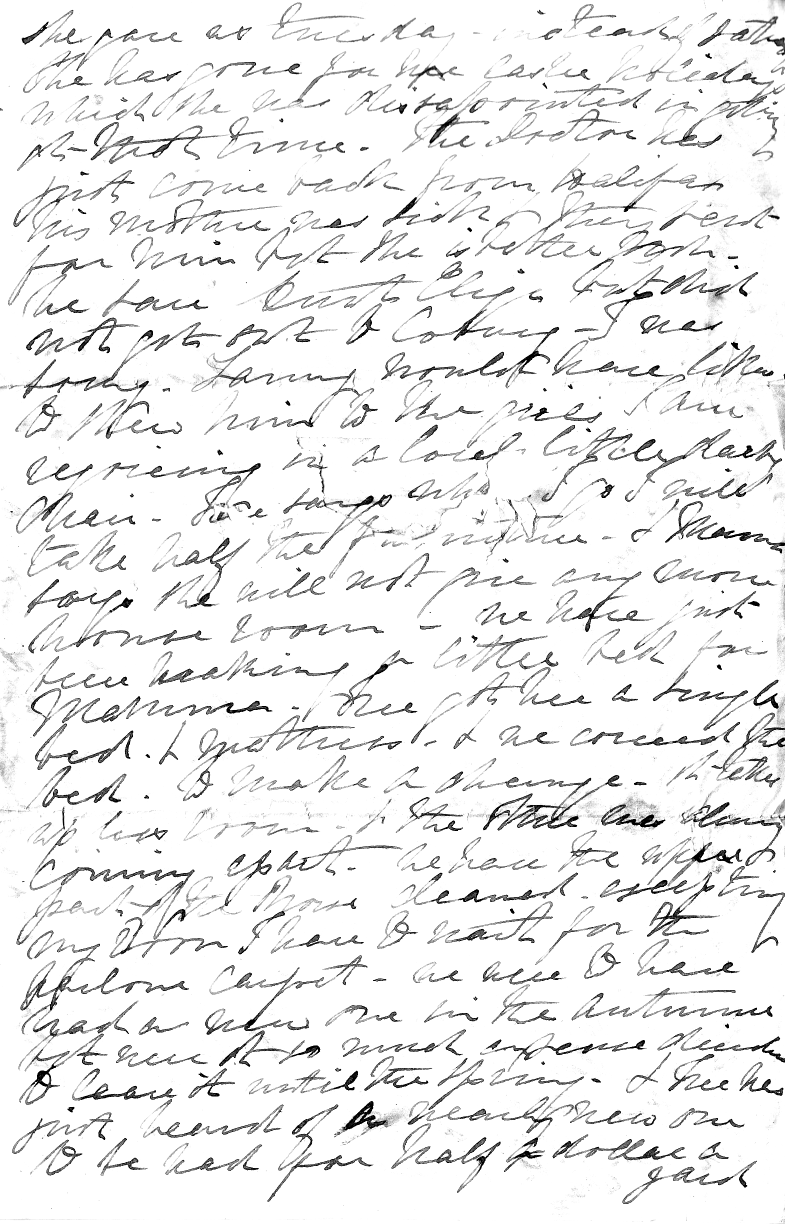 she gave us Tuesday - instead of Satur
She has gone for her easter holiday
which she was dissapointed in getting
at that time - The Doctor has
just come back from Halifax
his mother was sick & they sent
for him but she is better now -
he saw Aunt Eliza but did
not get out to Coburg - I was
sorry. Fanny would have liked
to show him to the girls I am
rejoicing in a lovel little
chair - says when I go I will
take half the furniture - & Mamma
says she will not give any more
house room - we have just
been making a little bed for
Mamma - got her a single
bed . & mattress - & we covered the
bed . to make a change - it takes
up less room - & the other was always
coming apart - we have the upper
part of the house cleaned - excepting
my room I have to wait for the
parlour carpet - we were to have
had a new one in the autumn
but were at so much expense decided
to leave it until the spring - & has
just heard of a nearly new one
to be had for half a dollar a
yard